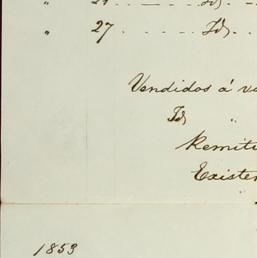 " 24 . . - - - - Id. - -
" 27 . - . - - . Id. -
Vendidos á va
Id "
Remiti
Existen
1853